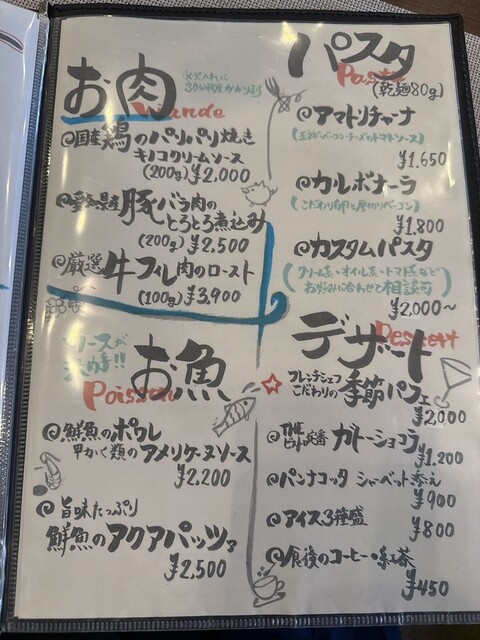 お肉
Viande
※火入れに
30分程度かかります
国産鶏のパリパリ焼き
キノコクリームソース
(200g) ¥2,000
愛知県産豚バラ肉の
とろとろ煮込み
(200g) ¥2,500
厳選牛フィレ肉のロースト
(100g) ¥3,900
ソースが
決め手!!
お魚
Poisson
鮮魚のポワレ
甲かく類のアメリケーヌソース
¥2,200
旨味たっぷり
鮮魚のアクアパッツァ
¥2,500
パスタ
Pasta
(乾麺80g)
アマトリチャーナ
(玉ネギ・ベーコン・チーズのトマトソース)
¥1.650
カルボナーラ
(こだわり卵と厚切りベーコン)
¥1.800
カスタムパスタ
(クリーム系・オイル系・トマト系など
お好みに合わせて相談可)
¥2,000~
デザート
Dessert
☆フレンチシェフ
こだわりの季節パフェ
¥2,000
THE
定番 ガトーショコラ
¥1,200
パンナコッタ シャーベット添え
¥900
アイス3種盛
¥800
食後のコーヒー・紅茶
¥450